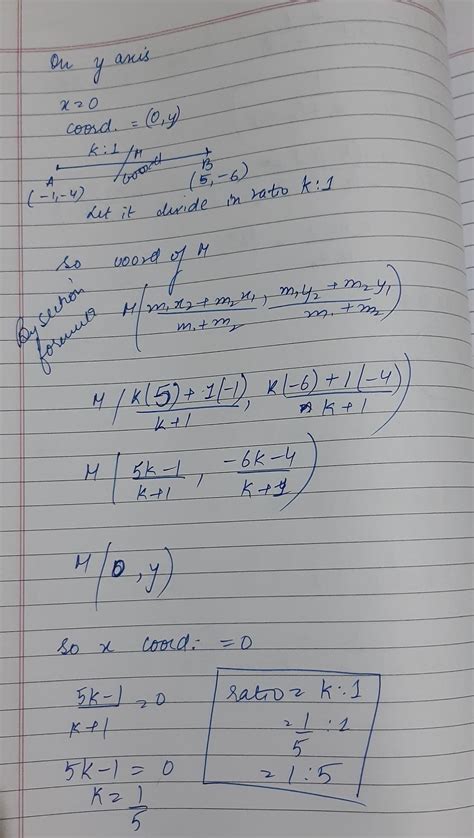 On y axis
x=0
coord. = (0,y)
k:1 M
A B
(-1,-4) (5,-6)
Let it divide in ratio k:1
So coord of M
By section formula M(m₁x₂+m₂x₁/m₁+m₂, m₁y₂+m₂y₁/m₁+m₂)
M(k(5)+1(-1)/k+1, k(-6)+1(-4)/k+1)
M(5k-1/k+1, -6k-4/k+1)
M(0,y)
So x coord: =0
5k-1/k+1 =0
5k-1 = 0
k=1/5
ratio= k:1
=1/5:1
=1:5